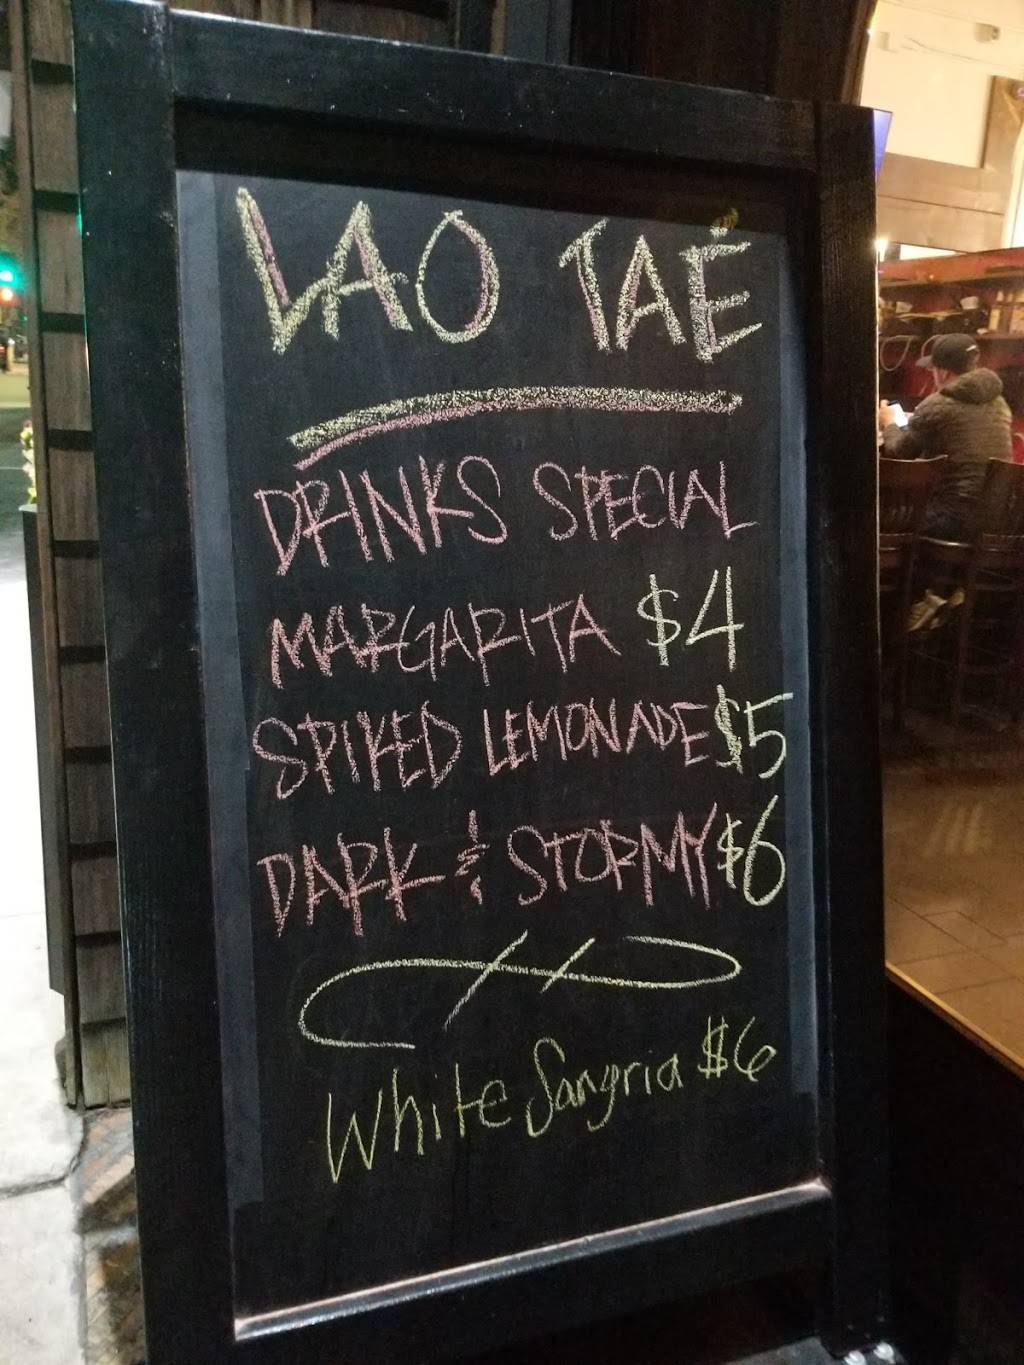 LAO TAÉ
DRINKS SPECIAL
MARGARITA $4
SPIKED LEMONADE $5
DARK & STORMY $6
White Sangria $6